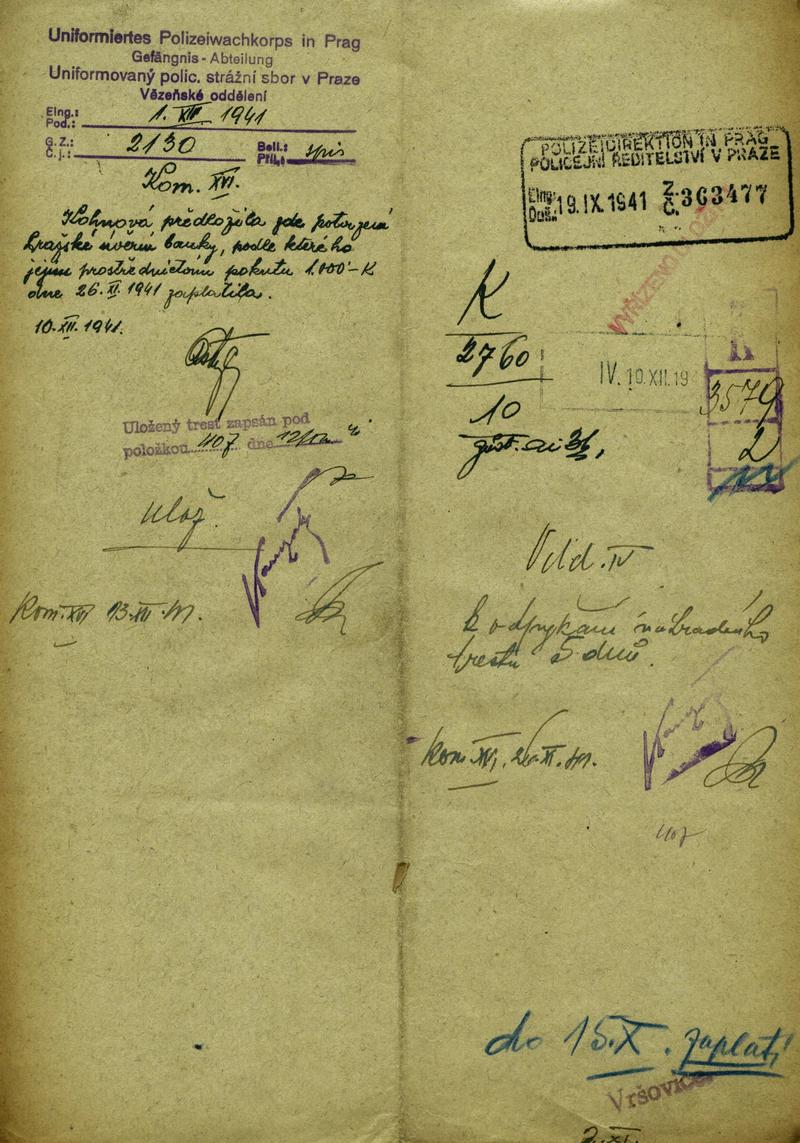 Uniformiertes Polizeiwachkorps in Prag
Gefängnis-Abteilung
Uniformovaný polic. strážní sbor v Praze
Vězeňské oddělení
Eing.:
Pod.: 1. XII. 1941
G. Z.:
Č. j.: 2130 Beil.:
Příl.: spis
Kom. XVI.
Kohnová předložila zde potvrzení
Pražské úvěrní banky, podle kterého
jejím prostřednictvím pokutu 1.000'-K
dne 26. XI. 1941 zaplatila.
10. XII. 1941.
Uložený trest zapsán pod
položkou 407 dne
ulož.
Kom. XVI 13. XII. 41.
POLIZEIDIREKTION IN PRAG
POLICEJNÍ ŘEDITELSTVÍ V PRAZE
Eing.
Doš. 19. IX. 1941 Z.
Č. 363477
VYŘÍZENO
K
2760
10
IV. 10. XII. 19
3579
2
Věd. IV
K odpykání náhradního
trestu 5 dnů.
Kom. XVI, 26. XI. 41.
407
do 15. X. zaplatí
Vršovice
2. XI.